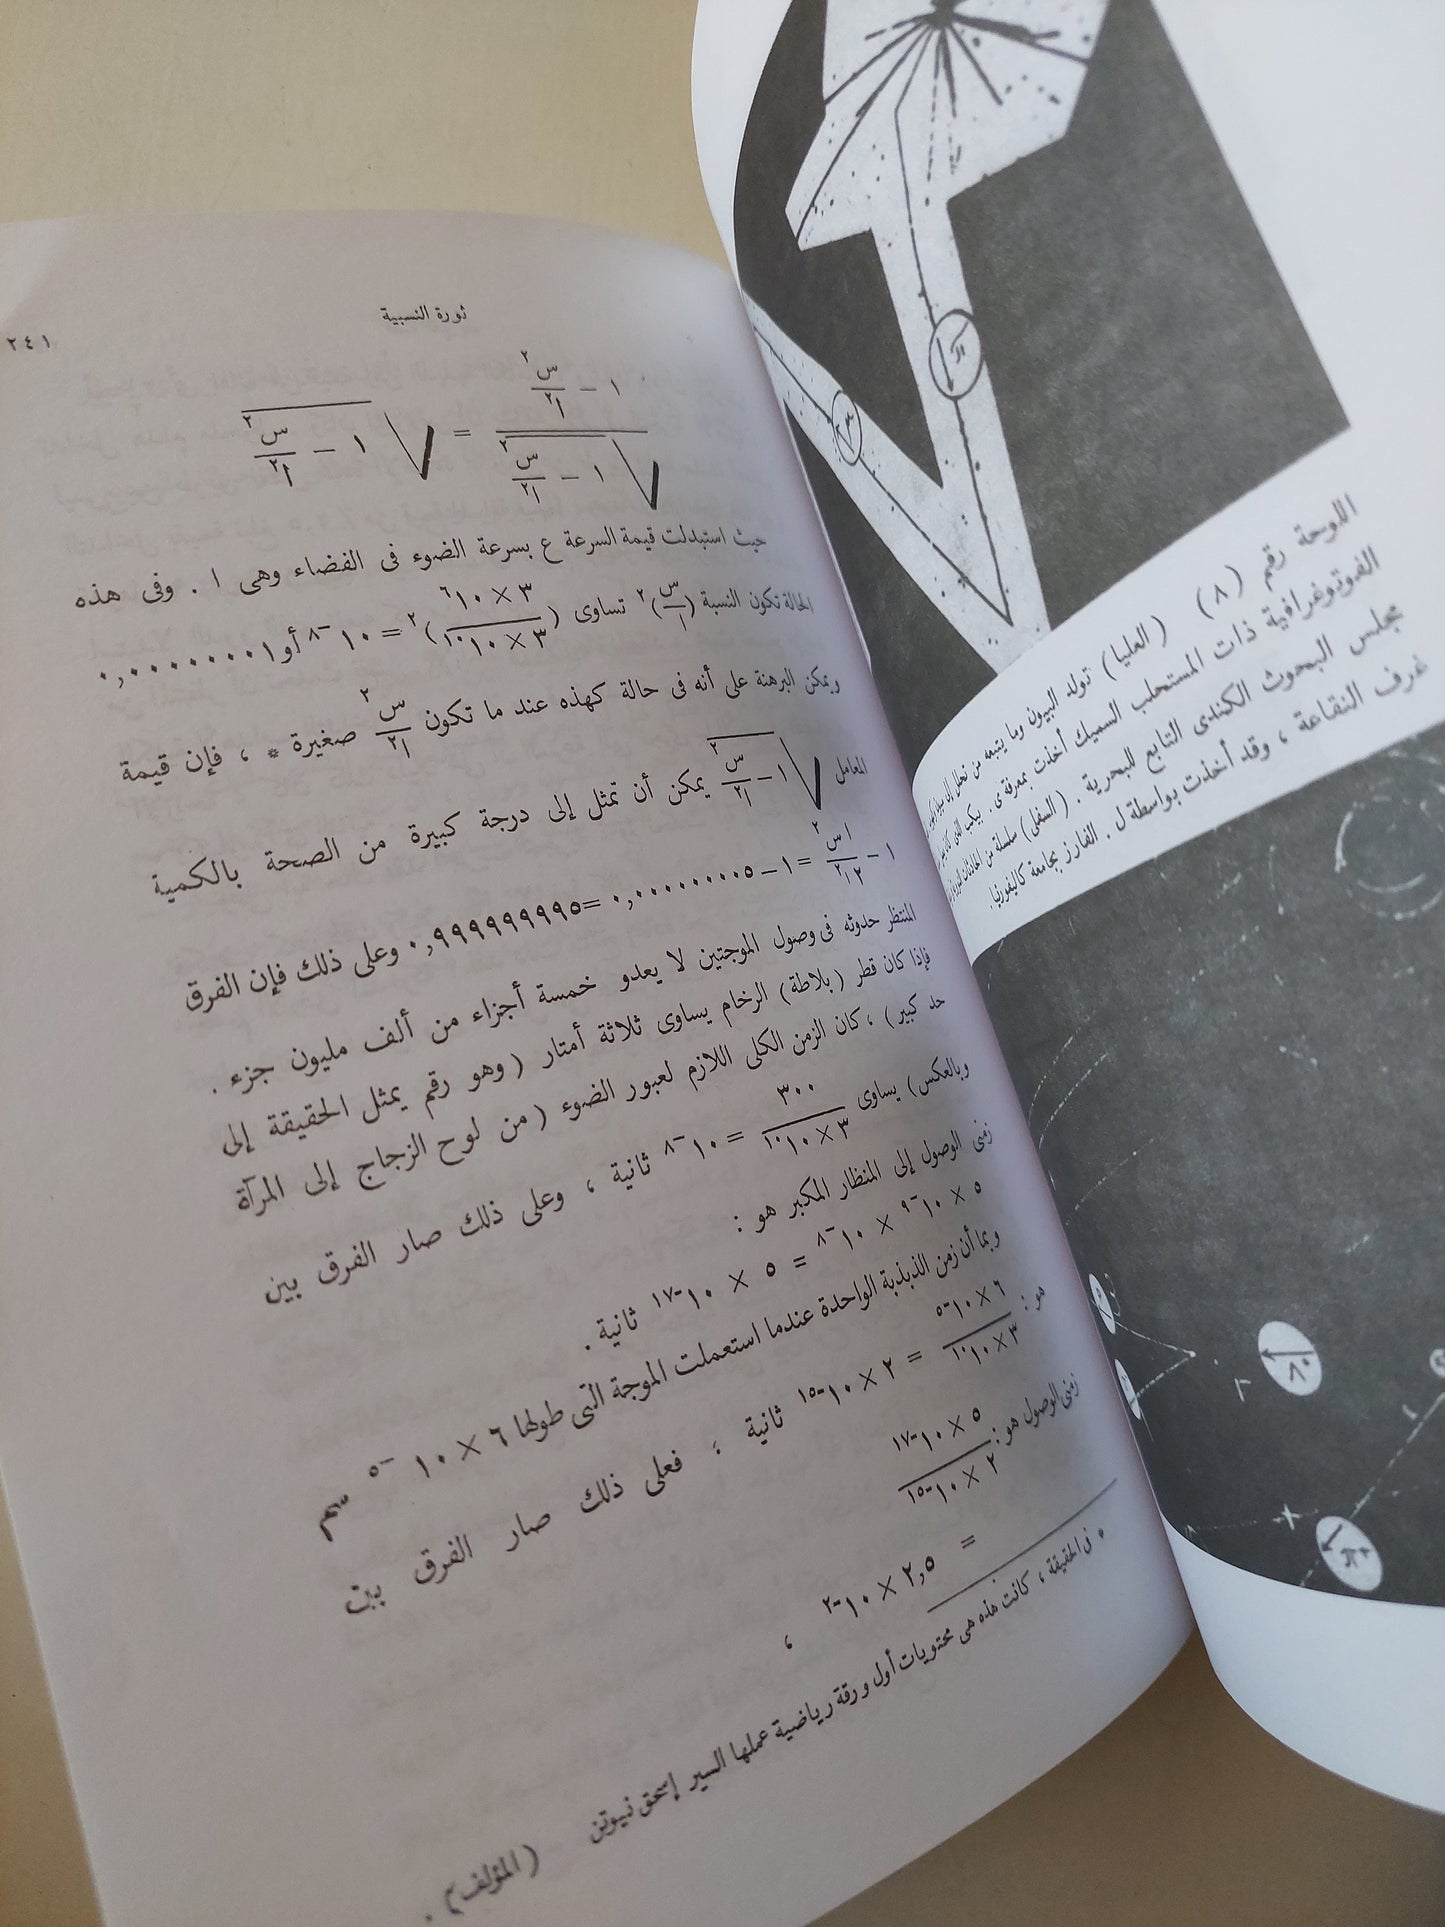 ثورة النسبية
٢٤١
١ − س٢/ا٢ / √(١ − س٢/ا٢) = √(١ − س٢/ا٢)
حيث استبدلت قيمة السرعة ع بسرعة الضوء فى الفضاء وهى ا . وفى هذه
الحالة تكون النسبة (س/ا)٢ تساوى (٣ × ١٠٦ / ٣ × ١٠١٠)٢ = ١٠−٨ أو ٠,٠٠٠٠٠٠٠١
ويمكن البرهنة على أنه فى حالة كهذه عند ما تكون س٢/ا٢ صغيرة * ، فإن قيمة
المعامل √(١ − س٢/ا٢) يمكن أن تمثل إلى درجة كبيرة من الصحة بالكمية
١ − ١س٢/٢ا٢ = ١ − ٠,٠٠٠٠٠٠٠٠٥ = ٠,٩٩٩٩٩٩٩٩٥ وعلى ذلك فإن الفرق
المنتظر حدوثه فى وصول الموجتين لا يعدو خمسة أجزاء من ألف مليون جزء .
فإذا كان قطر (بلاطة) الرخام يساوى ثلاثة أمتار (وهو رقم يمثل الحقيقة إلى
حد كبير) ، كان الزمن الكلى اللازم لعبور الضوء (من لوح الزجاج إلى المرآة
وبالعكس) يساوى ٣٠٠ / ٣ × ١٠١٠ = ١٠−٨ ثانية ، وعلى ذلك صار الفرق بين
زمنى الوصول إلى المنظار المكبر هو :
٥ × ١٠−٩ × ١٠−٨ = ٥ × ١٠−١٧ ثانية .
وبما أن زمن الذبذبة الواحدة عندما استعملت الموجة التى طولها ٦ × ١٠−٥ سم
هو : ٦ × ١٠−٥ / ٣ × ١٠١٠ = ٢ × ١٠−١٥ ثانية ؛ فعلى ذلك صار الفرق بين
زمنى الوصول هو : ٥ × ١٠−١٧ / ٢ × ١٠−١٥
= ٢,٥ × ١٠−٢ ،
* فى الحقيقة ، كانت هذه هى محتويات أول ورقة رياضية عملها السير إسحق نيوتن
(المؤلف) .
اللوحة رقم (٨) (العليا) تولد البيون وما يتبعه من تحلل إلى
الفوتوغرافية ذات المستحلب السميك أخذت بمعرفة ى . بيكب
مجلس البحوث الكندى التابع للبحرية . (السفلى) سلسلة من
غرف النقاعة ، وقد أخذت بواسطة ل . الفارز بجامعة كاليفورنيا .